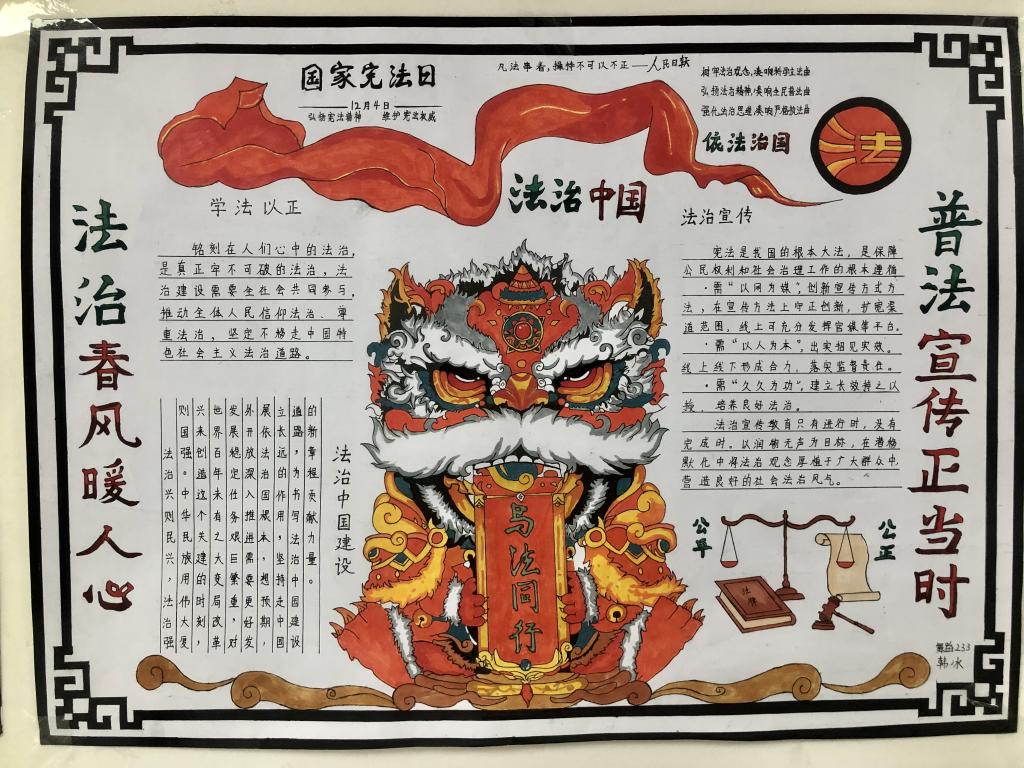 国家宪法日
12月4日
弘扬宪法精神 维护宪法权威
凡法事者,操持不可以不正——人民日报
树牢法治观念,奏响科学立法曲
弘扬法治精神,奏响全民普法曲
强化法治思维,奏响严格执法曲
依法治国
法
法治中国
法治春风暖人心
普法宣传正当时
学法以正
铭刻在人们心中的法治,
是真正牢不可破的法治,法
治建设需要全社会共同参与,
推动全体人民信仰法治、尊
重法治,坚定不移走中国特
色社会主义法治道路。
法治中国建设
法治兴则民兴,法治强
则国强。中华民族用伟大复
兴来创造这个关建的时刻,
世界百年未有之大变局改革
发展稳定任务艰巨繁重,对
外开放深入推进需要更好发
展依法治国根本,想预期,
立长远的作用,坚持走中国
道路,为书写法治中国建设
的新章程贡献力量。
与法同行
法治宣传
宪法是我国的根本大法,是保障
公民权利和社会治理工作的根本遵循
·需“以网为媒”,创新宣传方式方
法,在宣传方法上守正创新,扩宽渠
道范围,线上可充分发挥官媒等平台。
·需“以人为本”,出实招见实效。
线上线下形成合力,落实监督责任。
·需“久久为功”,建立长效持之以
培养良好法治。
法治宣传教育只有进行时,没有
完成时。以润物无声为目标,在潜移
默化中将法治观念厚植于广大群众中,
营造良好的社会法治风气。
公平
公正
法律
233
韩冰